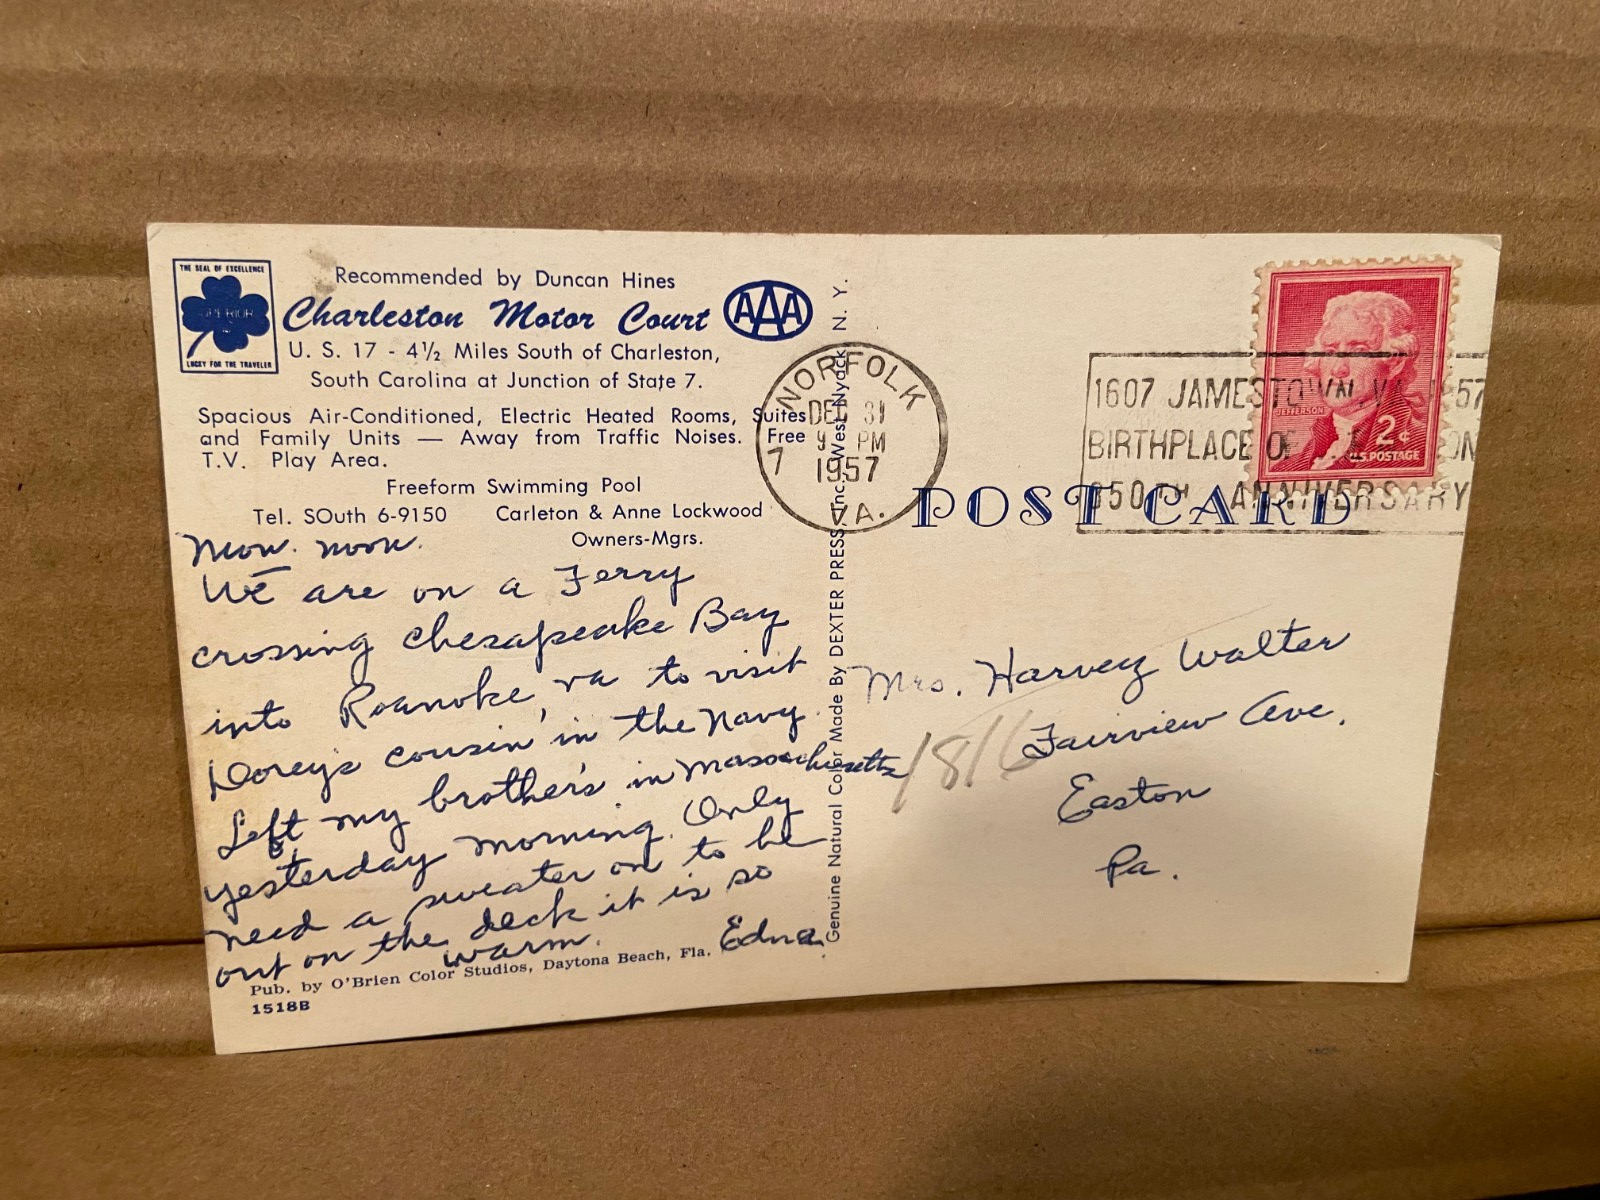 THE SEAL OF EXCELLENCE
SUPERIOR
LUCKY FOR THE TRAVELER
Recommended by Duncan Hines
Charleston Motor Court
AAA
U. S. 17 - 4½ Miles South of Charleston,
South Carolina at Junction of State 7.
Spacious Air-Conditioned, Electric Heated Rooms, Suites
and Family Units — Away from Traffic Noises. Free
T.V. Play Area.
Freeform Swimming Pool
Tel. SOuth 6-9150 Carleton & Anne Lockwood
Owners-Mgrs.
Mon. noon.
We are on a Ferry
crossing Chesapeake Bay
into Roanoke, Va to visit
cousin in the Navy.
Left my brother's in Massachusetts
yesterday morning. Only
need a sweater on to be
out on the deck it is so
warm. Edna.
Pub. by O'Brien Color Studios, Daytona Beach, Fla.
1518B
Genuine Natural Color Made By DEXTER PRESS, Inc., West Nyack, N. Y.
NORFOLK
DEC 31
PM
7
1957
VA.
1607 JAMESTOWN, VA. 1957
BIRTHPLACE OF
350TH ANNIVERSARY
JEFFERSON
2¢
U.S. POSTAGE
POST CARD
Mrs. Harvey Walter
1816 Fairview Ave.
Easton
Pa.